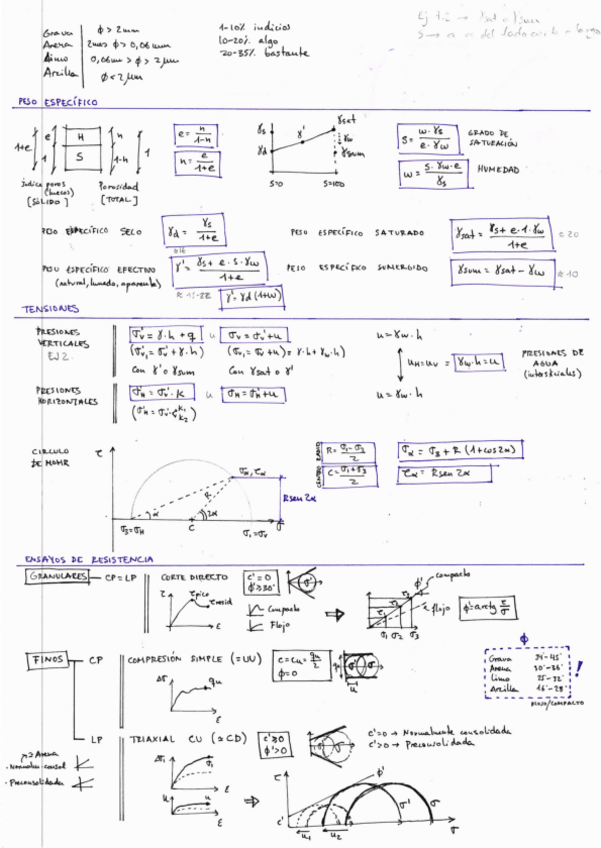 Grava φ > 2mm
Arena 2mm > φ > 0,06mm
Limo 0,06mm > φ > 2μm
Arcilla φ < 2μm
1-10% indicios
10-20% algo
20-35% bastante
PESO ESPECÍFICO
1+e e 1 H S n 1-n 1
Índice poros (huecos) [SÓLIDO]
Porosidad [TOTAL]
e = n/(1-n)
n = e/(1+e)
γs γd γ' γsat γw γsum
S=0 S=100
S = w·γs/(e·γw) GRADO DE SATURACIÓN
w = S·γw·e/γs HUMEDAD
PESO ESPECÍFICO SECO γd = γs/(1+e)
PESO ESPECÍFICO SATURADO γsat = (γs + e·1·γw)/(1+e) ≈ 20
PESO ESPECÍFICO EFECTIVO (natural, humedo, aparente) γ' = (γs + e·S·γw)/(1+e)
γ' = γd (1+w)
PESO ESPECÍFICO SUMERGIDO γsum = γsat - γw ≈ 10
TENSIONES
PRESIONES VERTICALES
EJ 2.
σv' = γ·h + q u σv = σv' + u u = γw·h
Con γ' o γsum Con γsat o γ'
uH = uV = γw·h = u PRESIONES DE AGUA (intersticiales)
PRESIONES HORIZONTALES
σH' = σv'·K u σH = σH' + u u = γw·h
CIRCULO DE MOHR
τ σα, τα R α 2α R sen 2α
σ3 = σH C σ1 = σv σ
CENTRO RADIO
R = (σ1 - σ3)/2
C = (σ1 + σ3)/2
σα = σ3 + R (1 + cos 2α)
τα = R sen 2α
ENSAYOS DE RESISTENCIA
GRANULARES CP = LP
CORTE DIRECTO
c' = 0
τ τpico τresid ε
Compacto
Flojo
φ' compacto
flojo
σ1 σ2 σ3
φ' = arctg τ/σ
φ
Grava 34-45
Arena 30-36
Limo 25-32
Arcilla 16-28
!
FLOJO/COMPACTO
FINOS CP
COMPRESIÓN SIMPLE (=UU)
c = cu = qu/2
φ = 0
Δσ qu ε
LP
TRIAXIAL CU (≈CD)
c' ≥ 0
φ' > 0
c' = 0 → Normalmente consolidada
c' > 0 → Preconsolidada
· Preconsolidada
u u ε
τ φ' c' u1 u2 σ' σ σ